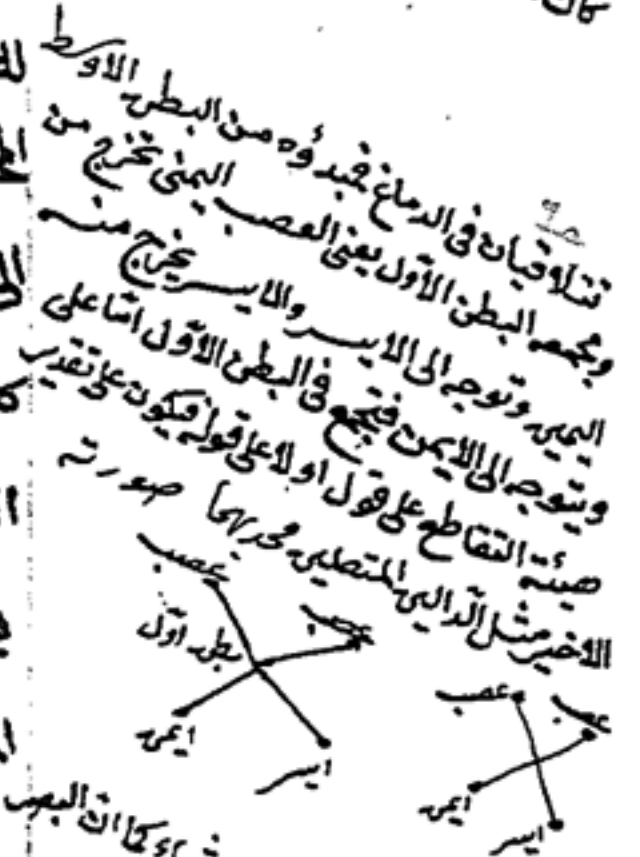 كان
تتلاقيان في الدماغ فمبدؤه من البطن الاوسط
ومجمعه البطن الأوّل يعني العصب اليمنى تخرج من
اليمين وتوجه الى الايسر والايسر يخرج منه
ويتوجه الى الايمن فتجمع في البطن الأوّل امّا على
هيئة التقاطع على قول او لا على قول فيكون على تقدير
الاخير مثل الدالين المتصلين محدبهما صورته
عصب
عصب
بطن اوّل
ايمن
ايسر
عصب
عصب
ايمن
ايسر
كما ان البصر